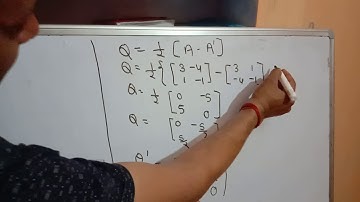 Q = 1/2 [A - A']
Q = 1/2 { [3 -4 1 -1] - [3 1 -4 -1]
Q = 1/2 [0 -5 5 0]
Q = [0 -5/2 5/2
Q'
0